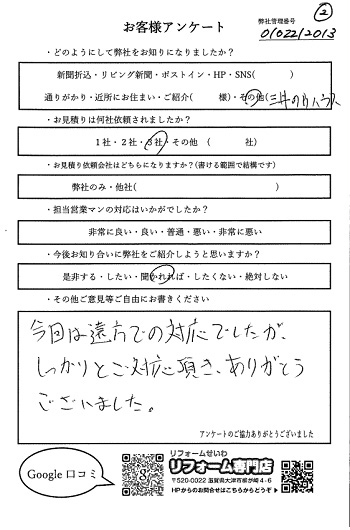 ②
お客様アンケート
弊社管理番号
0102212013
・どのようにして弊社をお知りになりましたか？
新聞折込・リビング新聞・ポストイン・HP・SNS( )
通りがかり・近所にお住まい・ご紹介( 様)・その他(三井のリハウス
・お見積りは何社依頼されましたか？
1社・2社・3社・その他 ( 社)
・お見積り依頼会社はどちらになりますか？(書ける範囲で結構です)
弊社のみ・他社( )
・担当営業マンの対応はいかがでしたか？
非常に良い・良い・普通・悪い・非常に悪い
・今後お知り合いに弊社をご紹介しようと思いますか？
是非する・したい・聞かれれば・したくない・絶対しない
・その他ご意見等ご自由にお書きください
今回は遠方での対応でしたが、
しっかりとご対応頂き、ありがとう
ございました。
アンケートのご協力ありがとうございました
Google 口コミ
g
リフォームせいわ
リフォーム専門店
〒520-0022 滋賀県大津市柳が崎4-6
HPからのお問合せはこちらからどうぞ